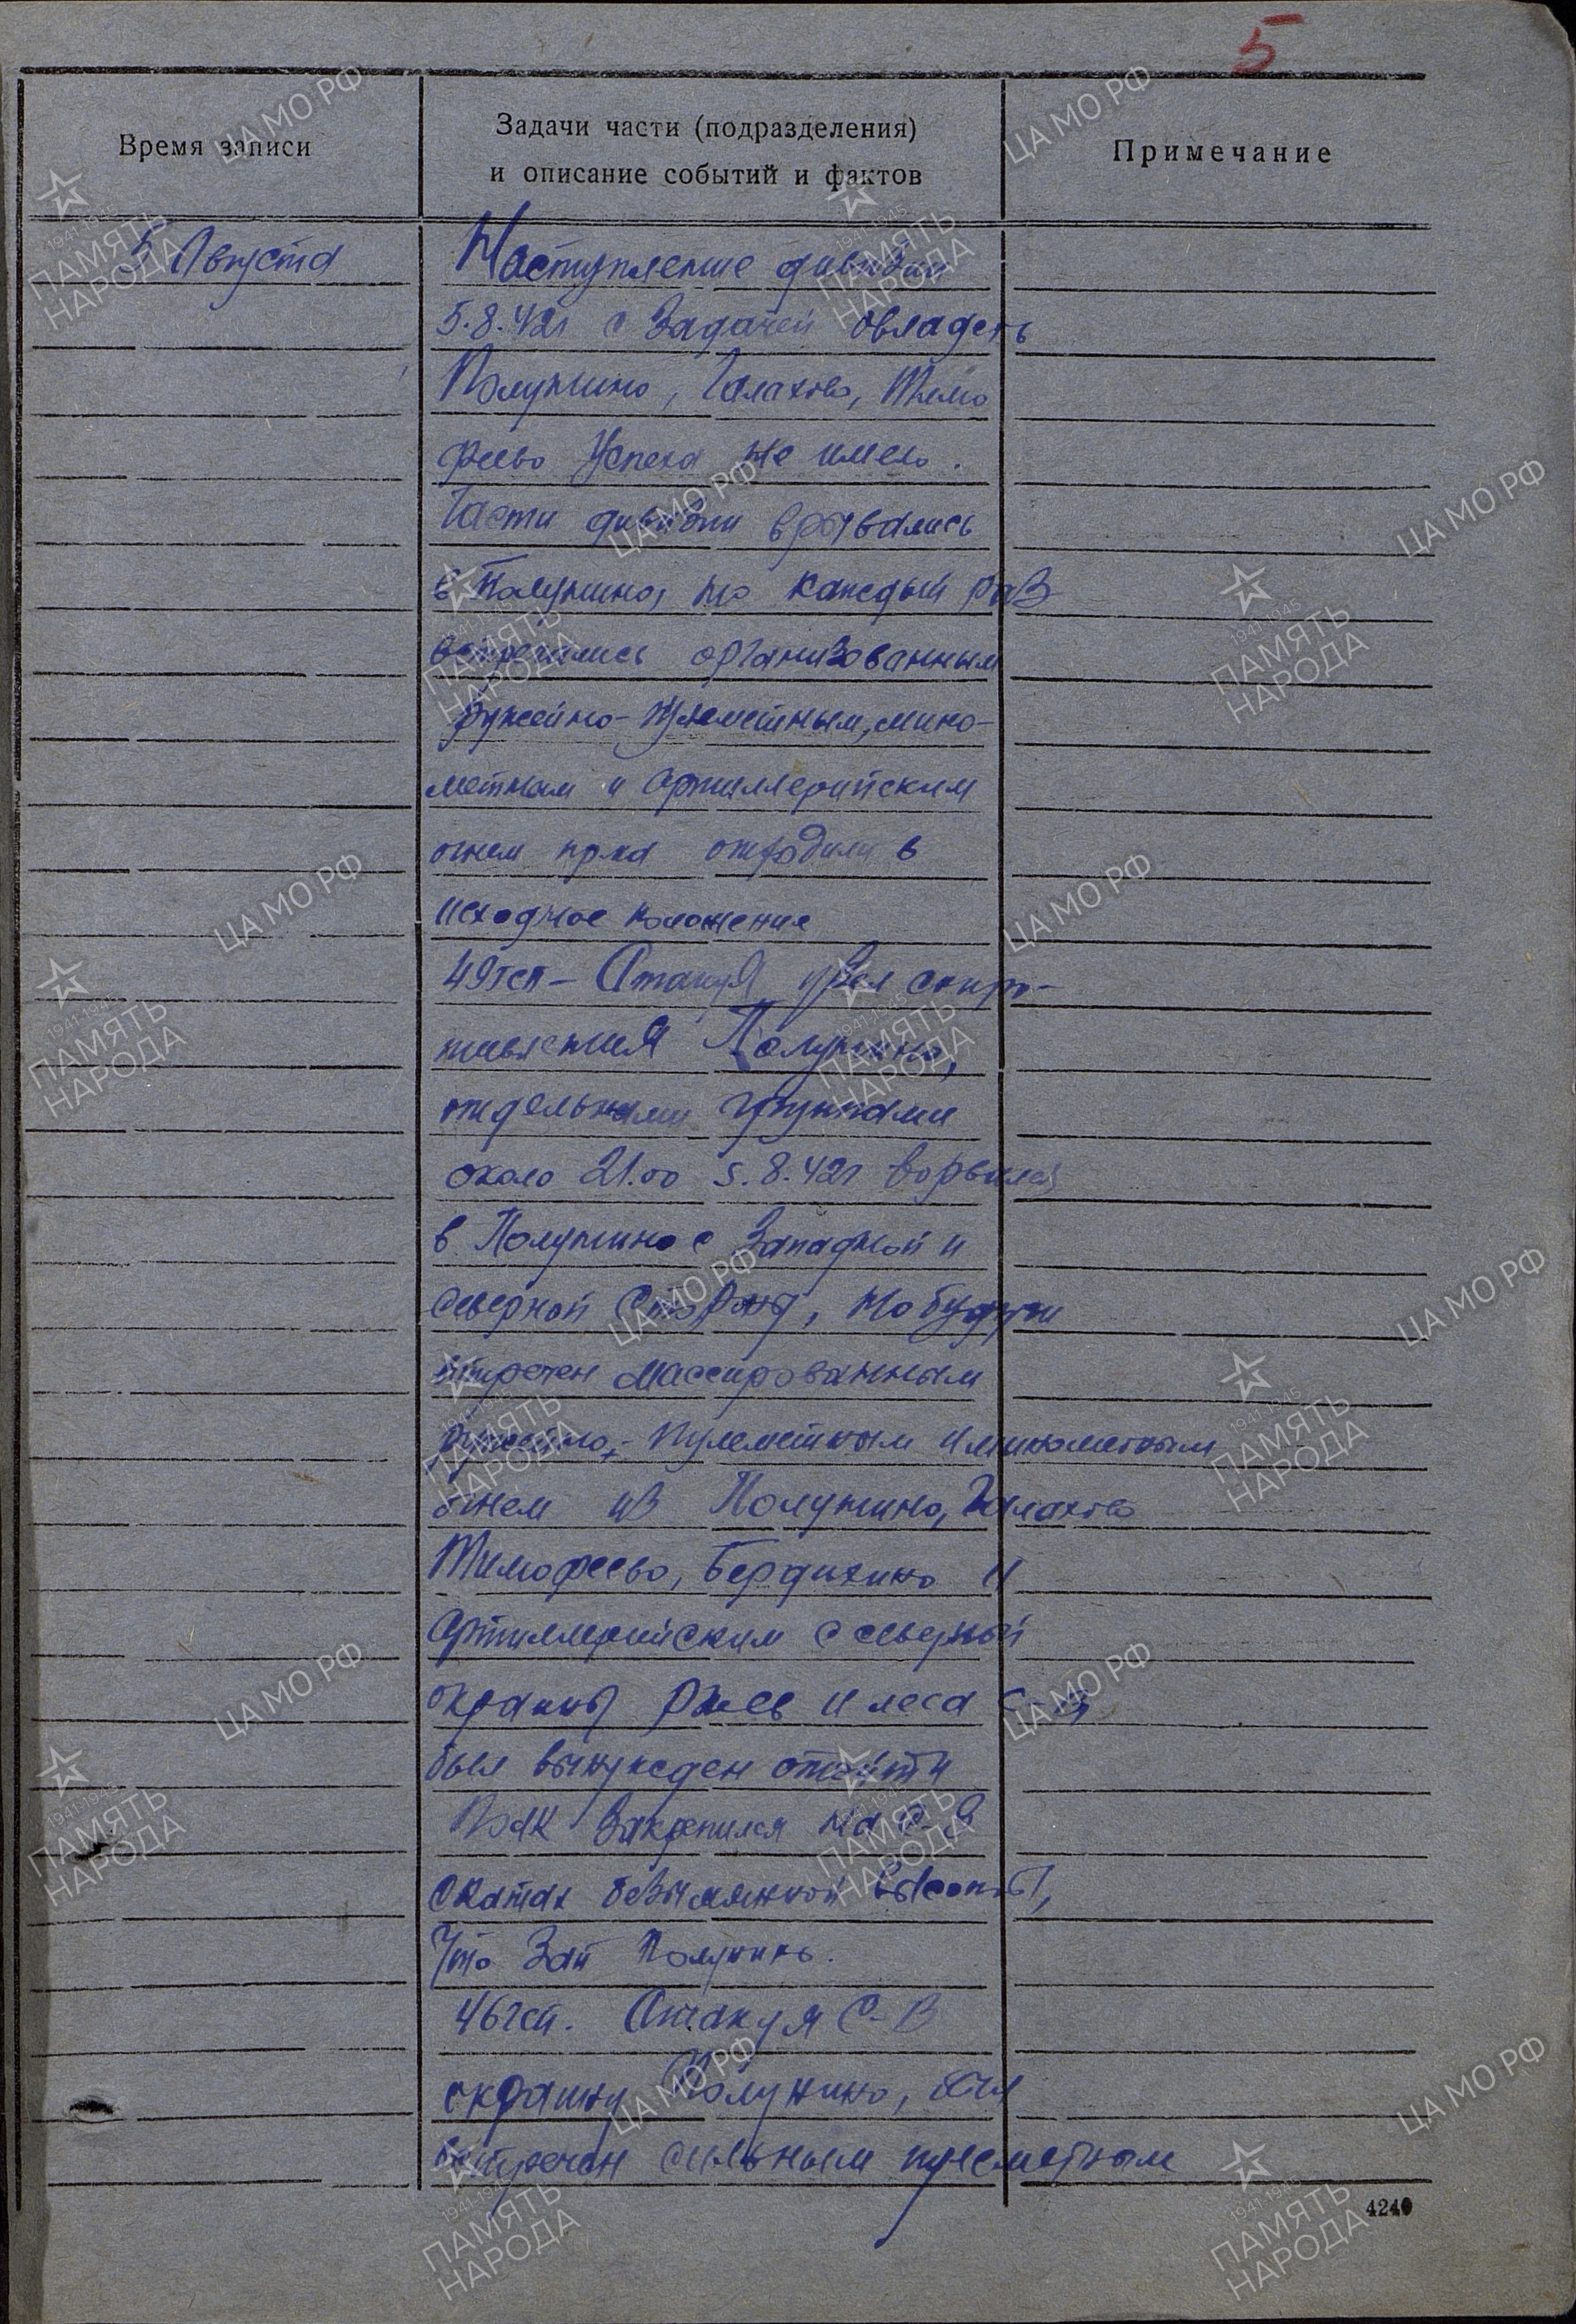 5
Время записи
Задачи части (подразделения)
и описание событий и фактов
Примечание
5 Августа
Наступление дивизии
5.8.42г с задачей овладеть
Полунино, Галахово, Тимо
феево успеха не имело.
Части дивизии врывались
в Полунино, но каждый раз
встречались организованным
ружейно-пулеметным, мино-
метным и артиллерийским
огнем отходили в
исходное положения
49гсп - Атакуя узел сопро-
тивления Полунино,
отдельными группами
около 21.00 5.8.42г ворвался
в Полунино с Западной и
Северной Стороны, но будучи
встречен массированным
ружейно,- пулеметным и минометным
огнем из Полунино, Галахово
Тимофеево, Бердихино и
артиллерийским с северной
окраины Ржев и леса
был вынужден отойти
Полк закрепился на С-З
скатах безымянной высоты,
что зап Полунино.
46гсп. Атакуя С-В
окраину Полунино, был
встречен сильным пулеметным
4240
ЦА МО РФ
1941-1945
ПАМЯТЬ
НАРОДА